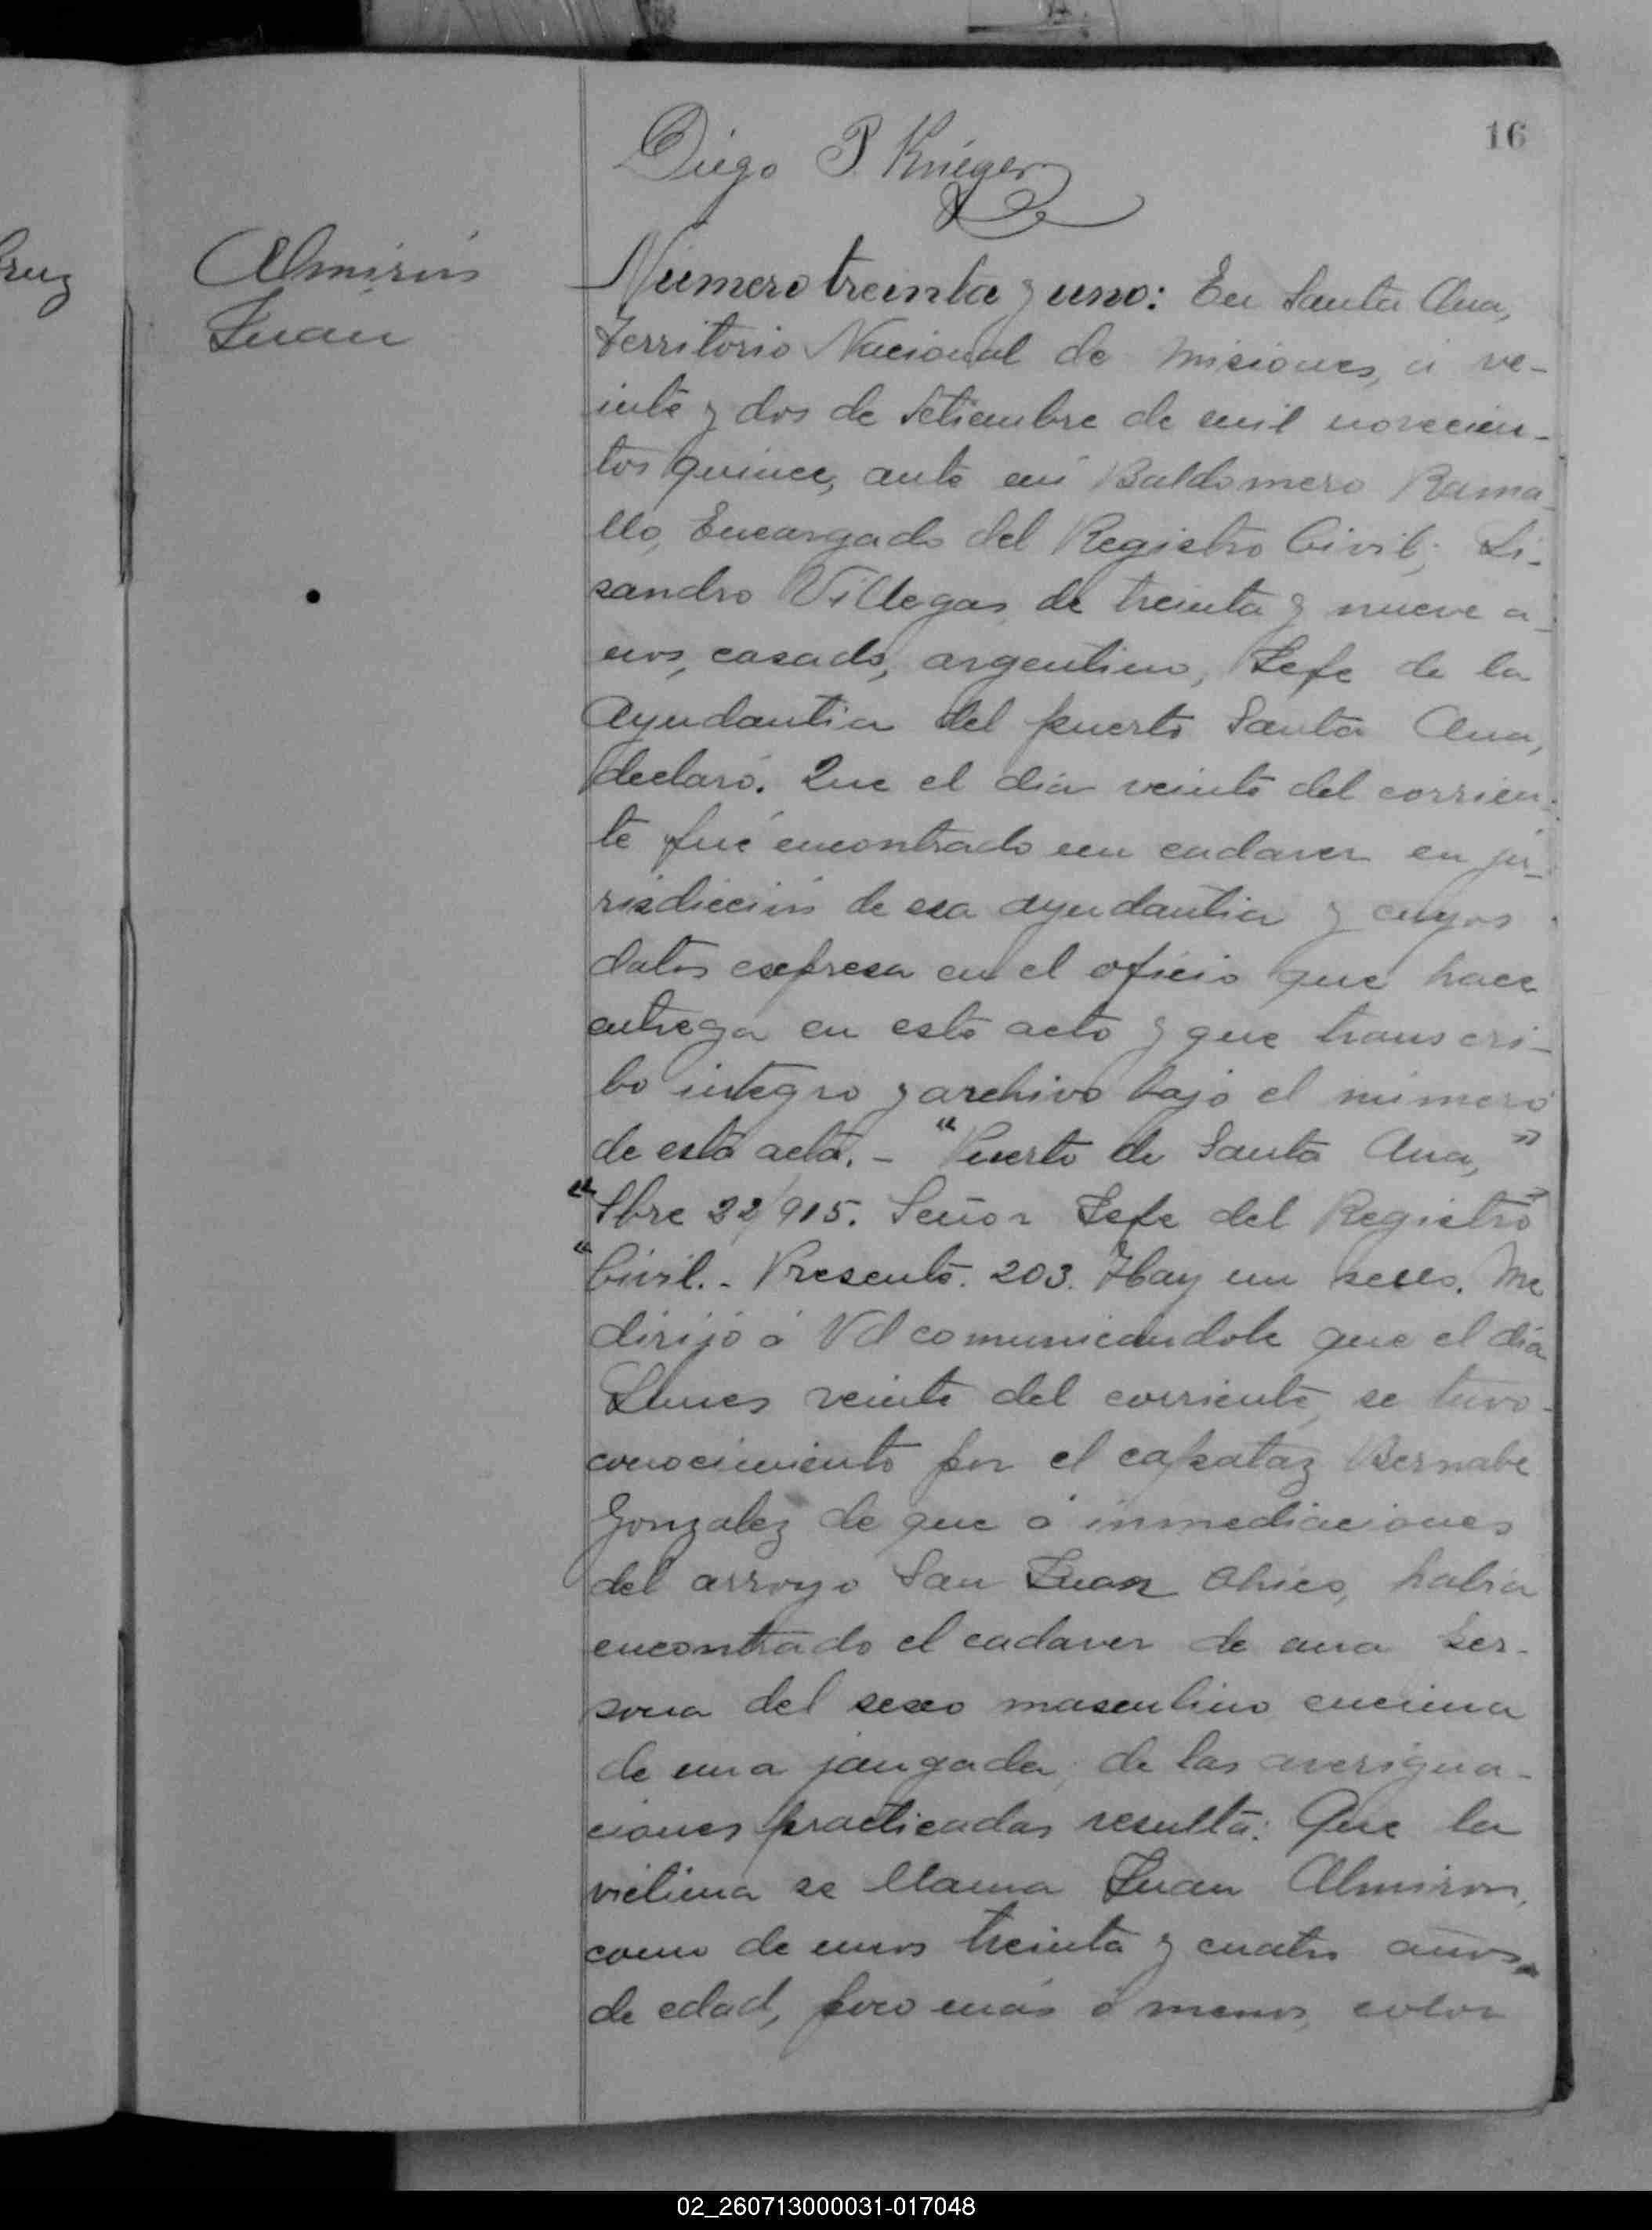 16
Diego P. Krieger
ruz
Almirón
Juan
Número treinta y uno: En Santa Ana,
Territorio Nacional de Misiones, á ve-
inte y dos de Setiembre de mil novecien-
tos quince, ante mi Baldomero Rama-
llo, Encargado del Registro Civil; Li-
sandro Villegas, de treinta y nueve a-
ños, casado, argentino, Jefe de la
Ayudantia del puerto Santa Ana,
declaró. Que el dia veinte del corrien-
te fué encontrado un cadaver en ju-
risdicción de esa ayudantia y cuyos
datos expresa en el oficio que hace
entrega en este acto y que transcri-
bo integro y archivo bajo el número
de esta acta. - "Puerto de Santa Ana, "
" Sbre 22/915. Señor Jefe del Registro "
" Civil. - Presente. 203. Hay un sello. Me
dirijo á Vd comunicandole que el dia
Lunes veinte del corriente, se tuvo
conocimiento por el capataz Bernabe
Gonzalez de que á inmediaciones
del arroyo San Juan Chico, habia
encontrado el cadaver de una per-
sona del sexo masculino encima
de una jangada; de las averigua-
ciones practicadas resulta: Que la
victima se llama Juan Almiron,
como de unos treinta y cuatro años,
de edad, poco más ó menos, color
02_260713000031-017048